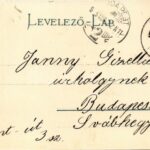 LEVELEZŐ-LAP
Janny Gizella
úrhölgynek
Budapes
Svábhegy
út
3 sz.